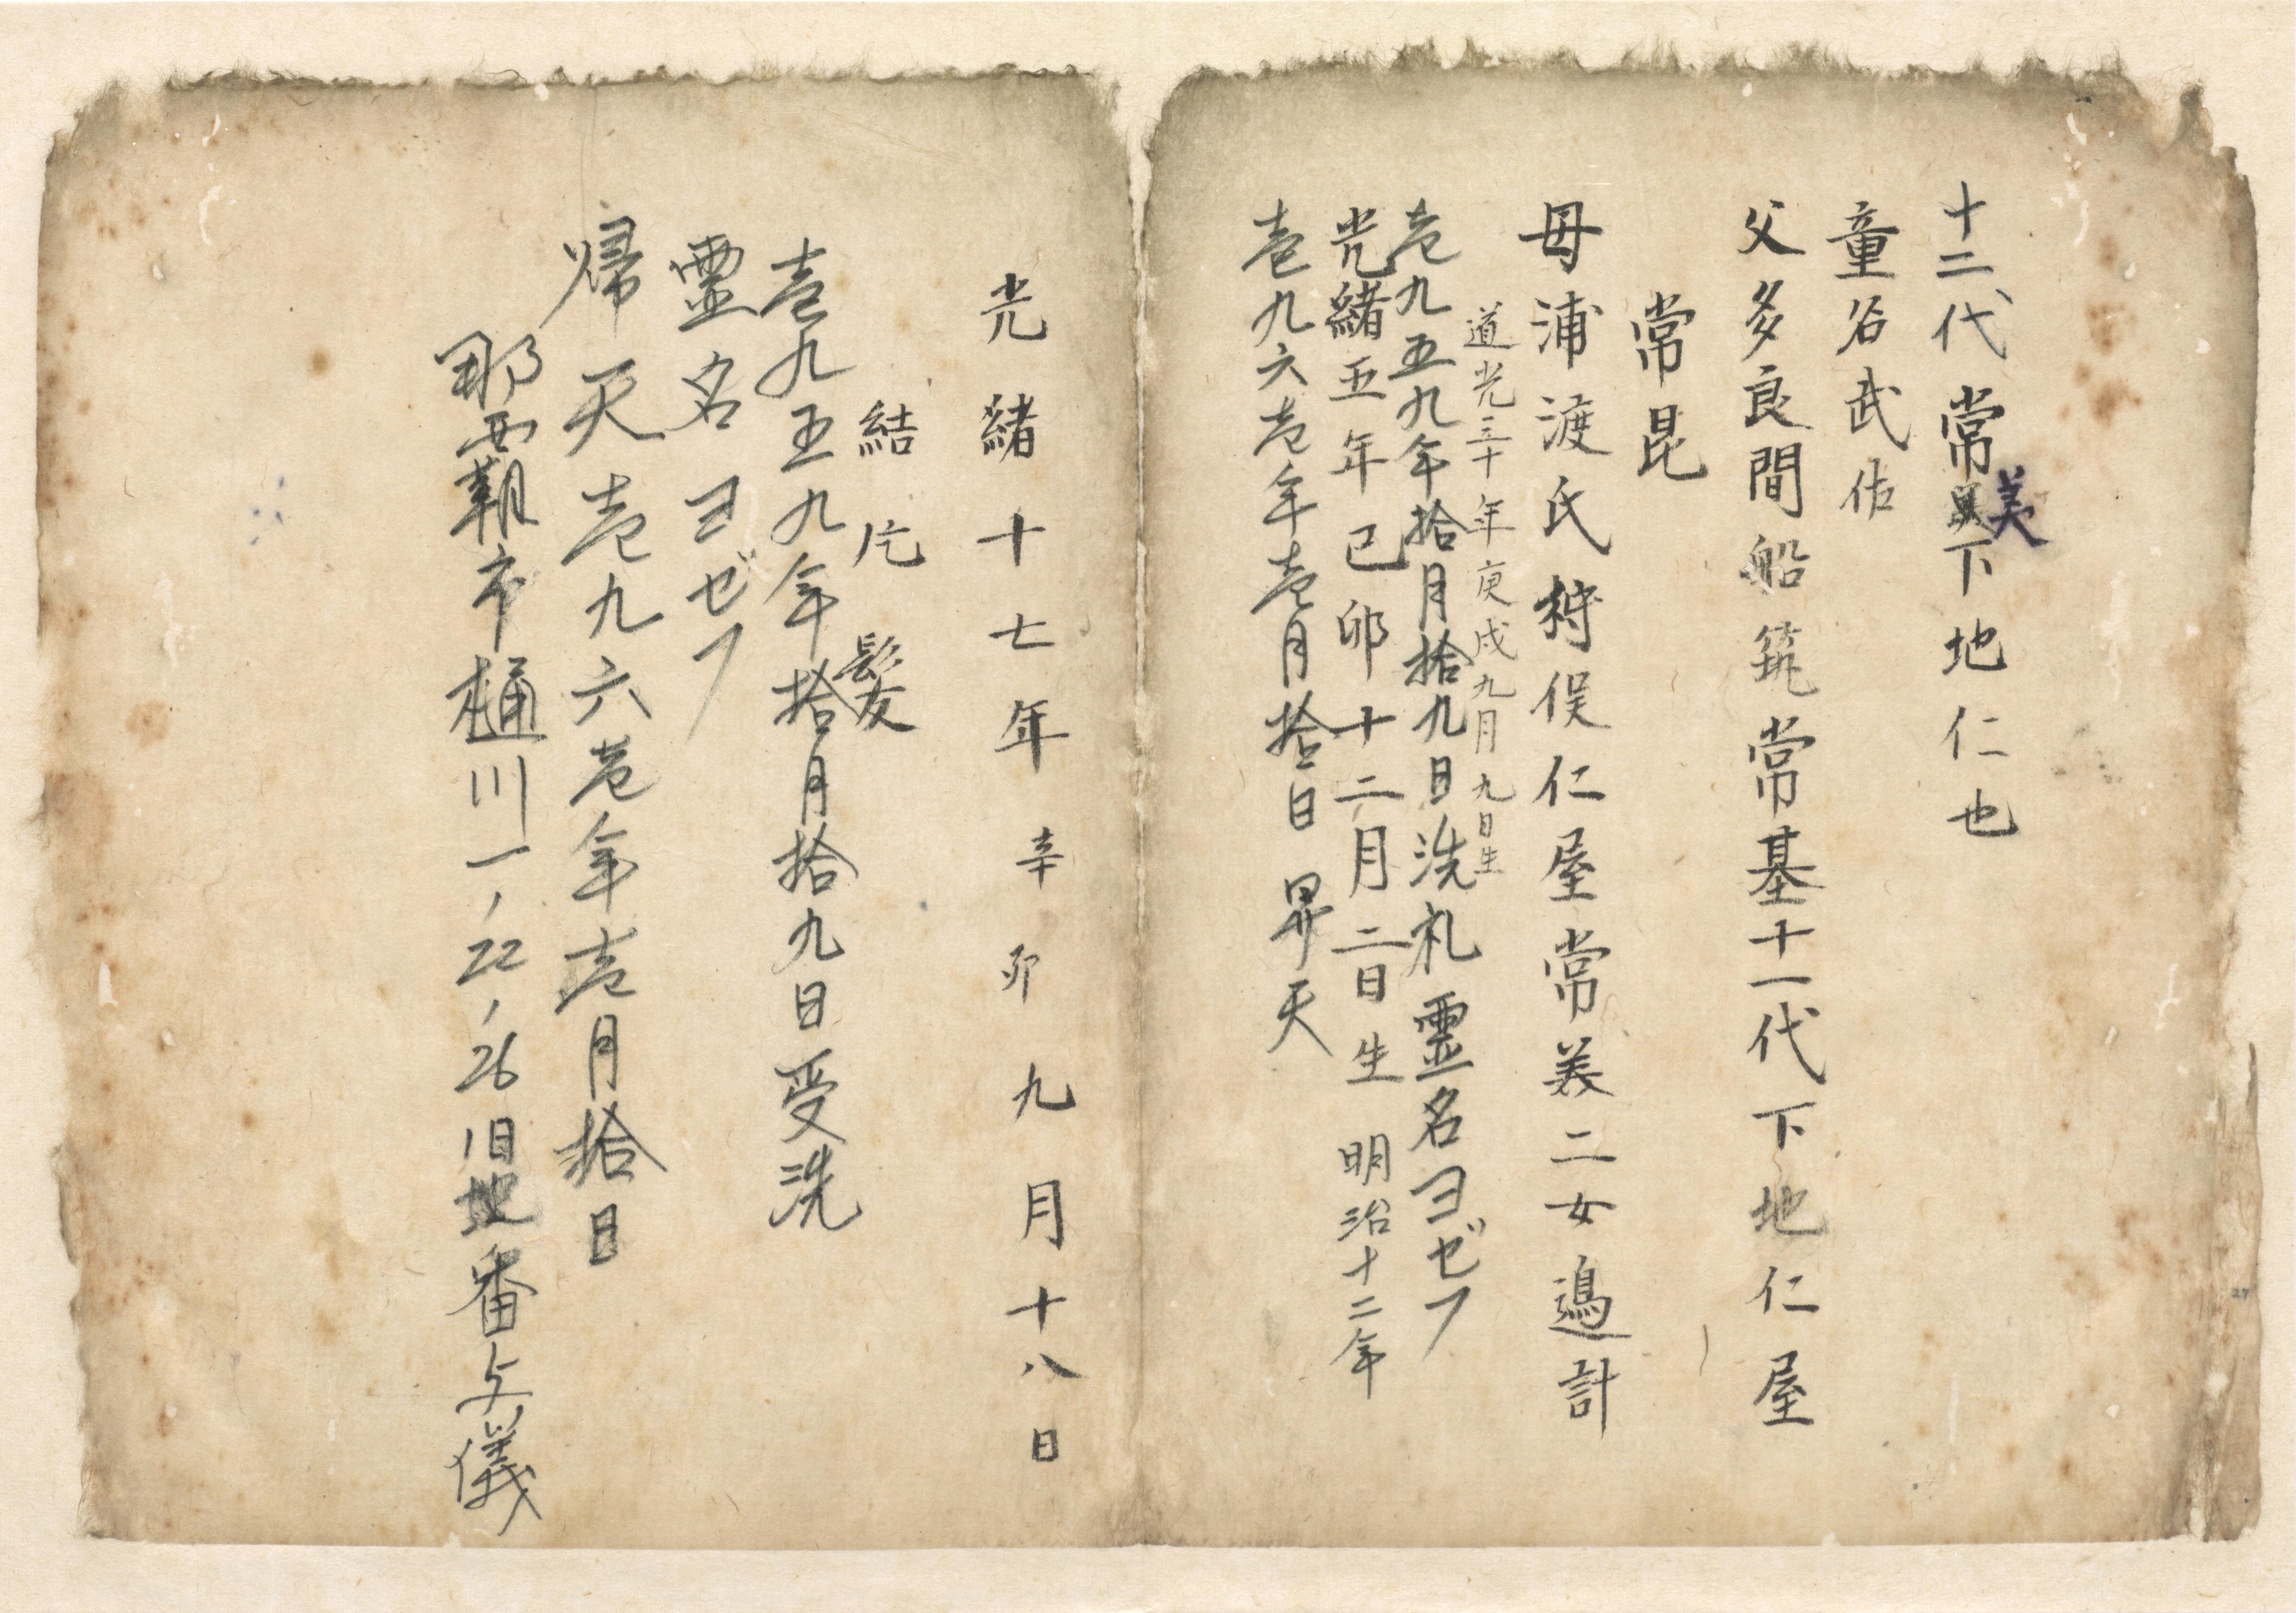 十二代常美下地仁也
童名武佑
父多良間船筑常基十一代下地仁屋
常昆
母浦渡氏狩俣仁屋常美二女過計
道光三十年庚戌九月九日生
壱九五九年拾月拾九日洗礼霊名ヨゼフ
光緒五年己卯十二月二日生 明治十二年
壱九六壱年壱月拾日昇天
光緒十七年辛卯九月十八日
結片髪
壱九五九年拾月拾九日受洗
霊名ヨゼフ
帰天壱九六壱年壱月拾日
那覇市樋川一、22、26旧地番与儀